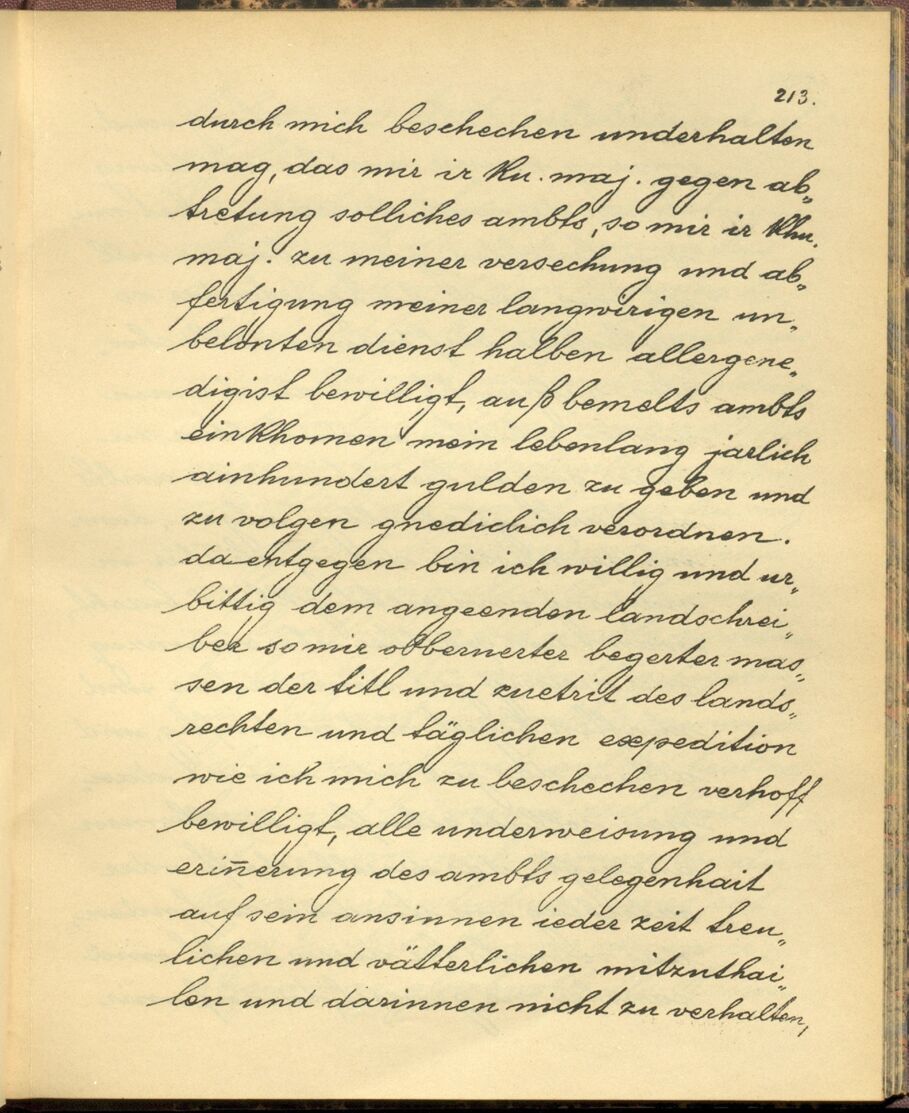 213.
durch mich beschechen underhalten
mag, das mir ir Ku. maj. gegen ab„
tretung solliches ambts, so mir ir Khu.
maj. zu meiner versechung und ab„
fertigung meiner langwirigen un„
belonten dienst halben allergene„
digist bewilligt, auß bemelts ambts
einkhomen mein lebenlang jarlich
ainhundert gulden zu geben und
zu volgen gnediclich verordnen.
da entgegen bin ich willig und ur„
bittig dem angeenden landschrei„
ber so mir obbernerter begerter mas„
sen der titl und zuetrit des lands„
rechten und täglichen expedition
wie ich mich zu beschechen verhoff
bewilligt, alle underweisung und
erin̄erung des ambts gelegenhait
auf sein ansinnen ieder zeit treu„
lichen und vätterlichen mitzuthai„
len und darinnen nicht zu verhalten,